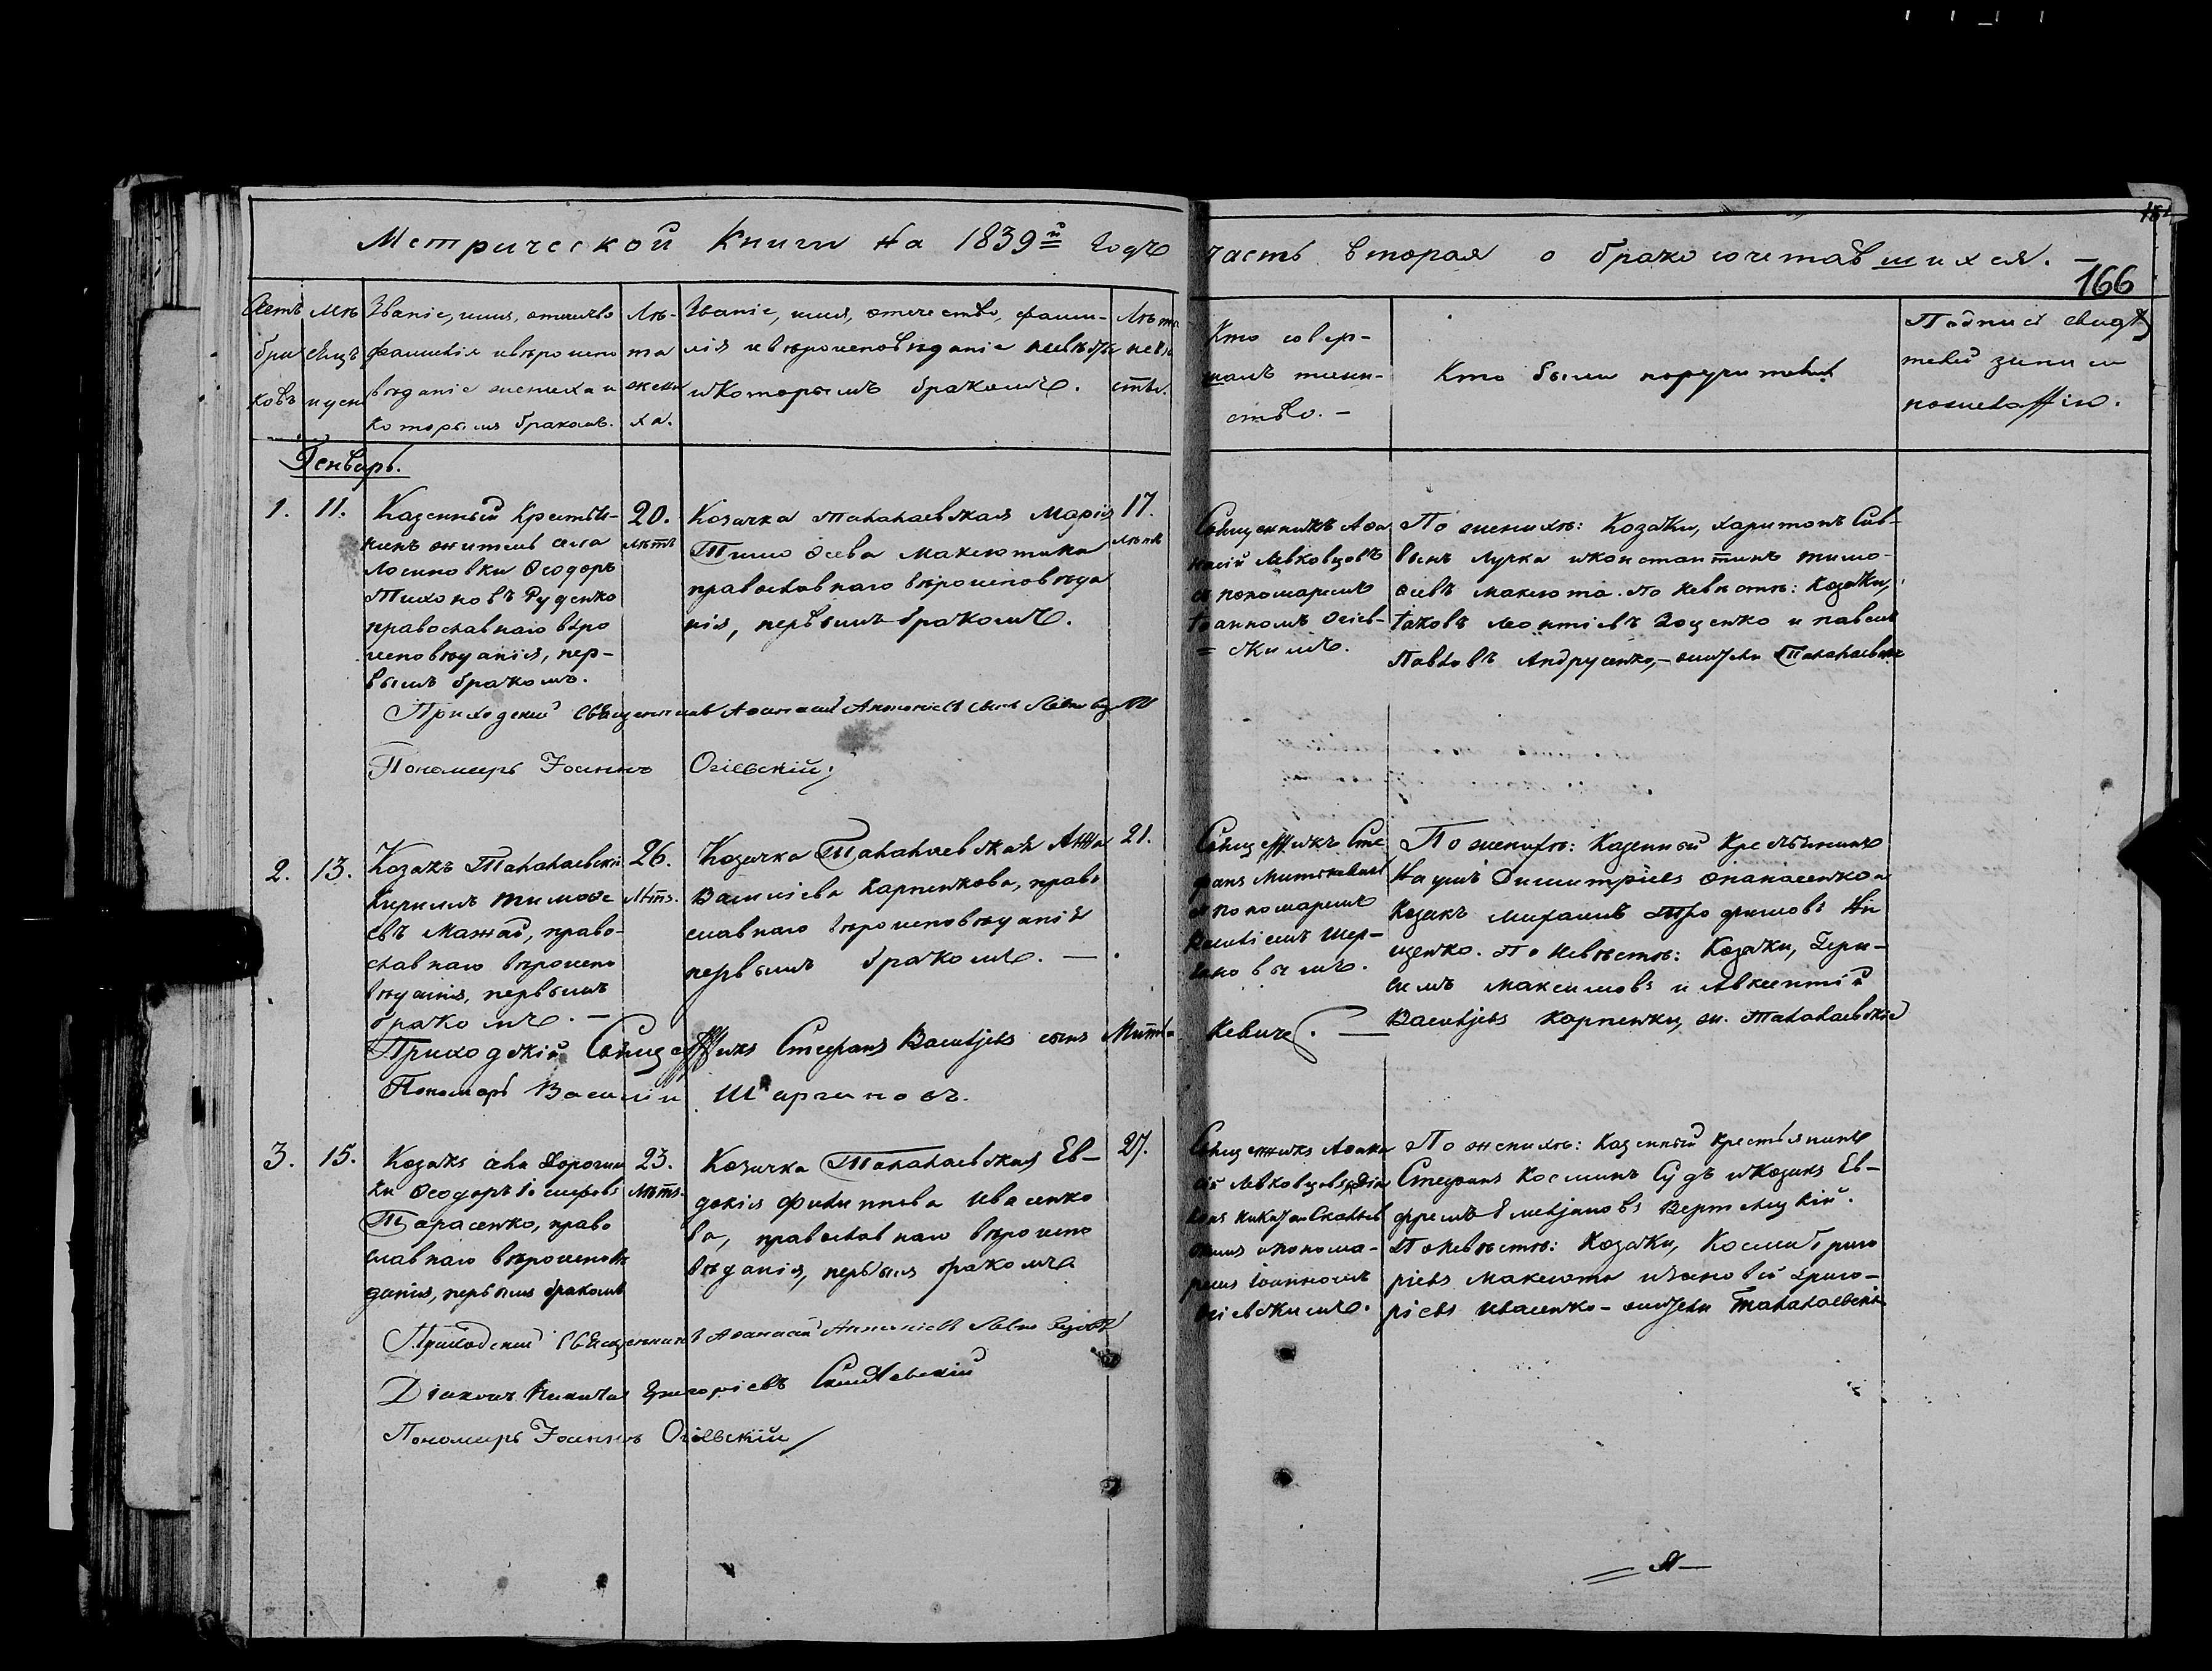 Метрической Книги на 1839й Годъ часть вторая о бракосочетавшихся. —
166
Счетъ
бра
ковъ
Мѣ
сяцъ
и день
Званіе, имя, отчество
фамилія и вѣроиспо
вѣданіе жениха и
которымъ бракомъ.
Лѣ-
та
жени
ха.
Званіе, имя, отечество, фами-
лія и вѣроисповѣданіе невѣсты
и которымъ бракомъ.
Лѣта
невѣ
сты.
Кто совер-
шалъ таин-
ство. —
Кто были поручители
Подписи свидѣ
телей записи
по желанію.
Генварь.
1. 11.
Казенный Крестья-
нинъ житель села
Лосиновки Ѳеодоръ
Тихоновъ Руденко
православнаго вѣро
исповѣданія, пер-
вымъ бракомъ.
20.
лѣтъ
Козачка Талалаевская Марія
Тимоѳеева Максютина
православнаго вѣроисповѣда
нія, первымъ бракомъ.
17.
лѣтъ
Священникъ Аѳа
насій Левковцовъ
съ пономаремъ
Іоанномъ Огіев-
скимъ.
По женихѣ: Козаки, Харитонъ Сав-
винъ Лучка и Константинъ Тимо-
ѳеевъ Максюта. По Невѣстѣ: Козаки,
Іаковъ Леонтіевъ Зоценко и Павелъ
Павловъ Андрусенко, — жители Талалаевскіе
Приходскій Священникъ Аѳанасій Антоніевъ сынъ Левковцовъ
Пономарь Іоаннъ Огіевскій
2. 13.
Козакъ Талалаевскій
Кириллъ Тимоѳе
евъ Мажай, право-
славнаго вѣроиспо
вѣданія, первымъ
бракомъ. —
26.
лѣтъ.
Козачка Талалаевская Анна
Василіева Карпенкова, право
славнаго вѣроисповѣданія
первымъ бракомъ. —
21.
Священникъ Сте
фанъ Миткевичъ
съ пономаремъ
Василіемъ Шар-
гиновымъ.
По женихѣ: Казенный Крестьянинъ
Наумъ Димитріевъ Опанасенко и
Козакъ Михаилъ Трофимовъ Ни
щенко. По Невѣстѣ: Козаки, Гера-
симъ Максимовъ и Авксентій
Васильевъ Карпенки, ж. Талалаевскіе
Приходскій Священникъ Стефанъ Васильевъ сынъ Миткевичъ. —
Пономарь Василій Шаргиновъ.
3. 15.
Козакъ села Дорогин
ки Ѳеодоръ Іосифовъ
Тарасенко, право
славнаго вѣроисповѣ
данія, первымъ бракомъ
23.
лѣтъ.
Козачка Талалаевская Ев-
докія Филиппова Ивасенко
ва, православнаго вѣроиспо
вѣданія, первымъ бракомъ
27.
Священникъ Аѳана
сій Левковцовъ, съ Діа
кономъ
и понома-
ремъ Іоанномъ
Огіевскимъ.
По женихѣ: Казенный Крестьянинъ
Стефанъ Косминъ Судъ и Козакъ Еф-
фремъ Емельяновъ Вертелецкій.
По Невѣстѣ: Козаки, Косма Григо
ріевъ Максюта и Григо-
ріевъ Ивасенко — жители Талалаевскіе
Приходскій Священникъ Аѳанасій Антоніевъ Левковцовъ
Діаконъ Никита Григоріевъ
Пономарь Іоаннъ Огіевскій